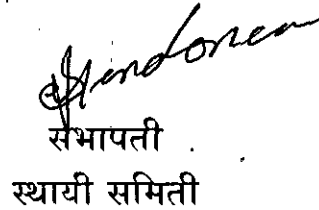 सभापती
स्थायी समिती